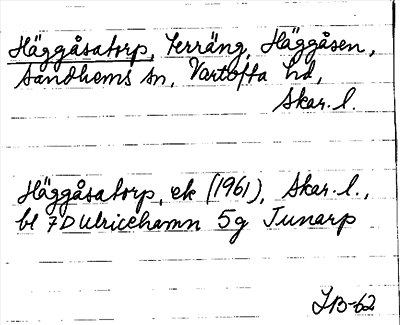 Häggåsatorp, Terräng, Häggåsen,
Sandhems sn, Vartofta hd,
Skar. l.
Häggåsatorp, ek (1961), Skar. l.,
bl 7D Ulricehamn 5g Tunarp
IB-62